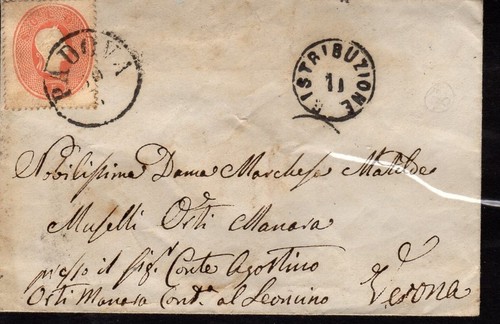 PADOVA
DISTRIBUZIONE
11
Nobilissima Dama Marchesa Matilde
Muselli Orti Manara
presso il Sigr Conte Agostino
Orti Manara Contra al Leoncino
Verona